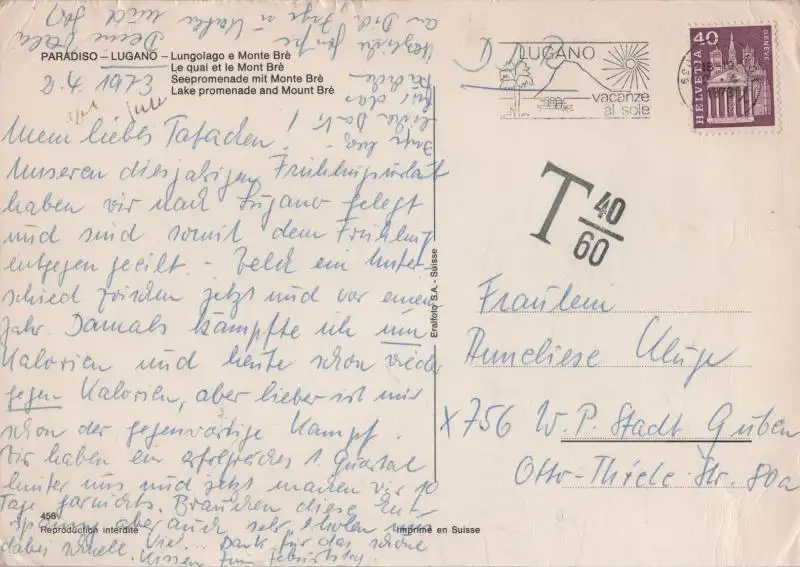 PARADISO – LUGANO – Lungolago e Monte Brè
Le quai et le Mont Brè
Seepromenade mit Monte Brè
Lake promenade and Mount Brè
2.4.1973
Mein liebes Tafachen!
Unseren diesjährigen Frühlingsurlaub
haben wir nach Lugano gelegt
und sind somit dem Frühling
entgegen geeilt. – Welch ein Unter-
schied zwischen jetzt und vor einem
Jahr. Damals kämpfte ich um
Kalorien und heute schon wieder
gegen Kalorien, aber lieber ist mir
schon der gegenwärtige Kampf.
Wir haben ein erfolgreiches 1. Quartal
hinter uns und jetzt machen wir 10
Tage garnichts. Brauchen diese Ent-
spannung aber auch sehr, erholen uns
dabei schnell. Viel... Dank für das schöne
Kissen zum Geburtstag.
Herzliche Grüße
an Dich
Deine
458
Reproduction interdite
Imprimé en Suisse
Eralfoto S.A. - Suisse
LUGANO
vacanze
al sole
40
HELVETIA
GENEVE
T 40/60
Fräulein
Anneliese Kluge
X 756 W. P. Stadt Guben
Otto-Thiele-Str. 80a